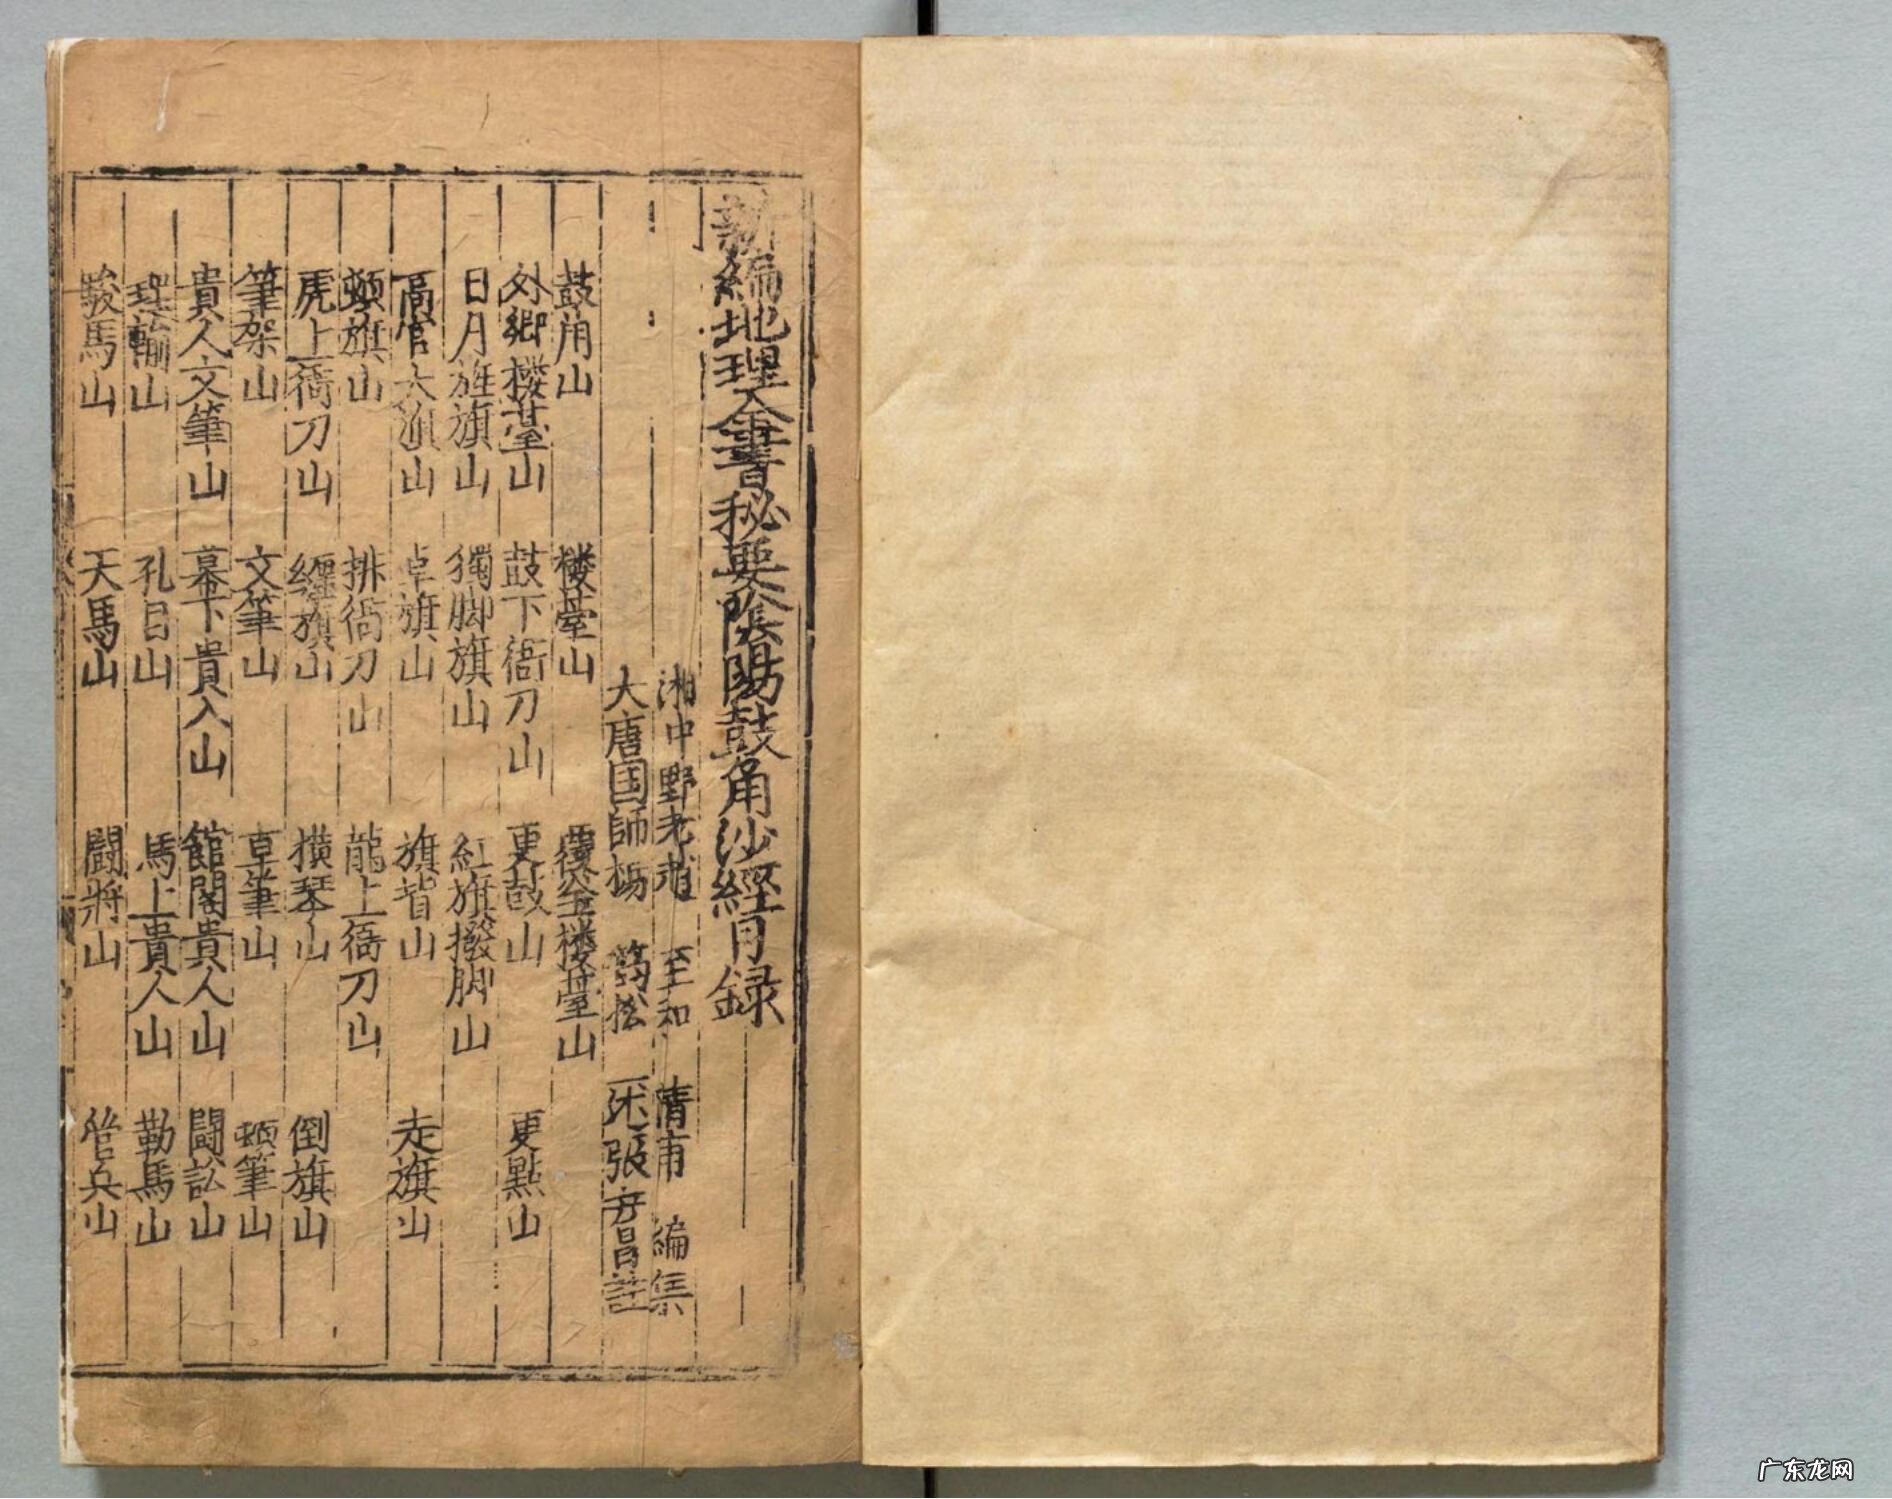 新編地理全書秘要陰陽鼓角沙經目録
湘中野老趙 至和 清甫 編集
大唐国師楊 筠松 張 註
鼓角山 楼䑓山 覆釜楼䑓山
外郷楼䑓山 鼓下衙刀山 更鼓山 更點山
日月旌旗山 獨脚旗山 紅旗撥脚山
高官大旗山 卓旗山 旗山 走旗山
頓旗山 排衙刀山 龍上衙刀山
虎上衙刀山 纒旗山 横琴山 倒旗山
筆架山 文筆山 草筆山 頓筆山
貴人文筆山 幕下貴人山 館閣貴人山 闘訟山
山 孔目山 馬上貴人山 勒馬山
駿馬山 天馬山 闘將山 管兵山
广东龙网